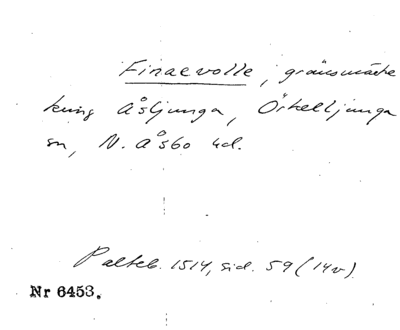 Finaevolle, gränsmärke
kring Åsljunga, Örkelljunga
sn, N. Åsbo hd.
Palteb. 1514, sid. 59 (14v).
Nr 6453.